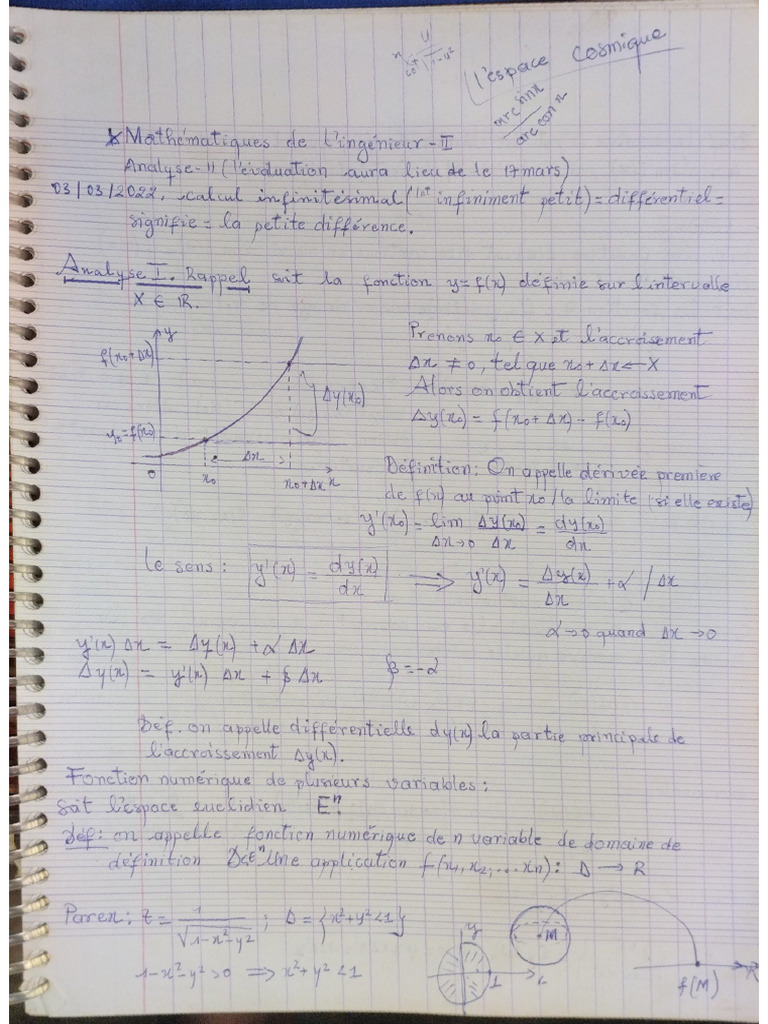 l'espace cosmique
arc sin x
arc con x
Mathématiques de l'ingénieur-II
Analyse-II (l'évaluation aura lieu de le 17 mars)
03/03/2022. calcul infinitésimal (infiniment petit) = différentiel =
signifie = la petite différence.
Analyse I. Rappel soit la fonction y=f(x) définie sur l'intervalle
X ∈ R.
Prenons x₀ ∈ X et l'accroisement
Δx ≠ 0, tel que x₀+Δx ← X
Alors on obtient l'accroissement
Δy(x₀) = f(x₀+Δx) - f(x₀)
y
f(x₀+Δx)
Δy(x₀)
y₀=f(x₀)
Δx
0
x₀
x₀+Δx
x
Définition: On appelle dérivée premiere
de f(x) au point x₀ la limite (si elle existe)
y'(x₀) = lim Δx→0 Δy(x₀)/Δx = dy(x₀)/dx
Le sens: y'(x) = dy(x)/dx ⟹ y'(x) = Δy(x)/Δx + α /Δx
α→0 quand Δx→0
y'(x) Δx = Δy(x) + α Δx
Δy(x) = y'(x) Δx + β Δx β=-α
Déf. on appelle différentielle dy(x) la partie principale de
l'accroissement Δy(x).
Fonction numérique de plusieurs variables:
Soit l'espace euclidien Eⁿ.
Déf: on appelle fonction numérique de n variable de domaine de
définition D⊂Eⁿ une application f(x₁, x₂, ... xₙ): D → R
Par ex: z = 1/√(1-x²-y²) ; D = {x²+y²<1}
1-x²-y²>0 ⟹ x²+y²<1
y
1
M
f(M)
R